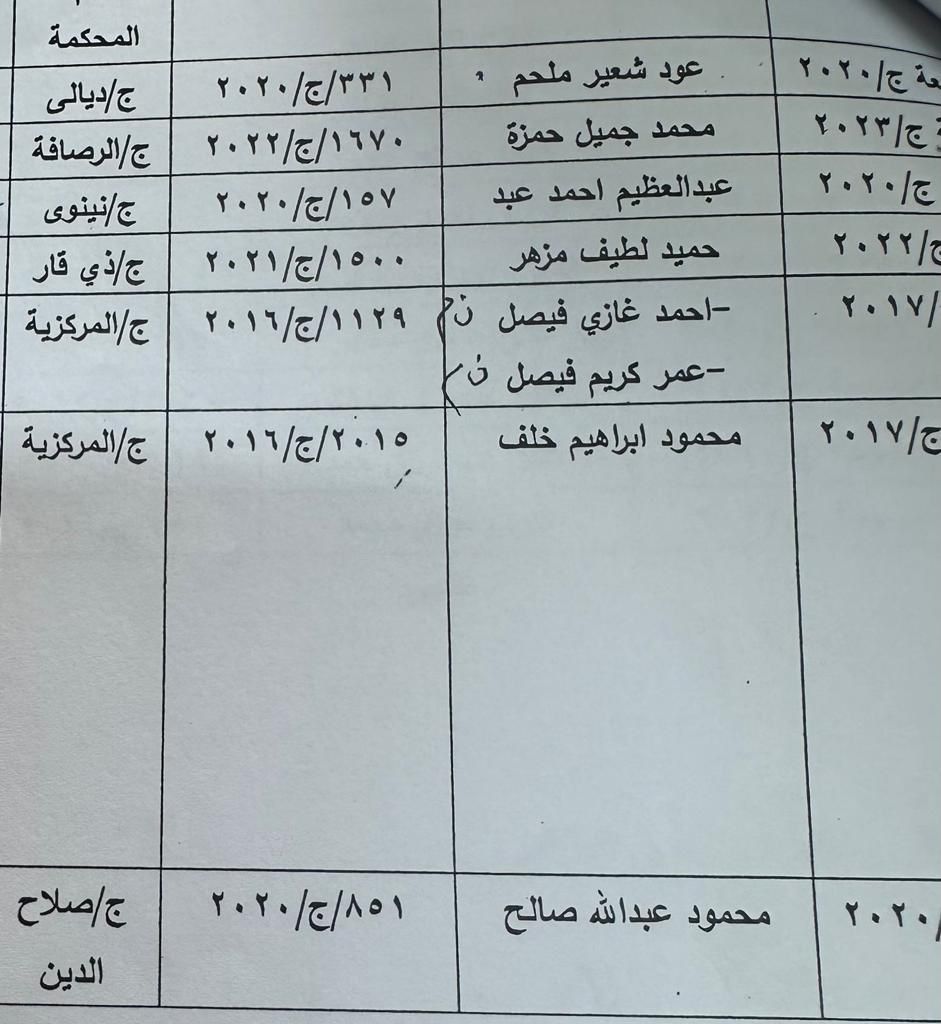 المحكمة
عة ج/٢٠٢٠ عود شعير ملحم ٣٣١/ج/٢٠٢٠ ج/ديالى
ج/٢٠٢٣ محمد جميل حمزة ١٦٧٠/ج/٢٠٢٢ ج/الرصافة
ج/٢٠٢٠ عبدالعظيم احمد عبد ١٥٧/ج/٢٠٢٠ ج/نينوى
ج/٢٠٢٢ حميد لطيف مزهر ١٥٠٠/ج/٢٠٢١ ج/ذي قار
/٢٠١٧ -احمد غازي فيصل ١١٢٩/ج/٢٠١٦ ج/المركزية
-عمر كريم فيصل
ج/٢٠١٧ محمود ابراهيم خلف ٢٠١٥/ج/٢٠١٦ ج/المركزية
/٢٠٢٠ محمود عبدالله صالح ٨٥١/ج/٢٠٢٠ ج/صلاح
الدين